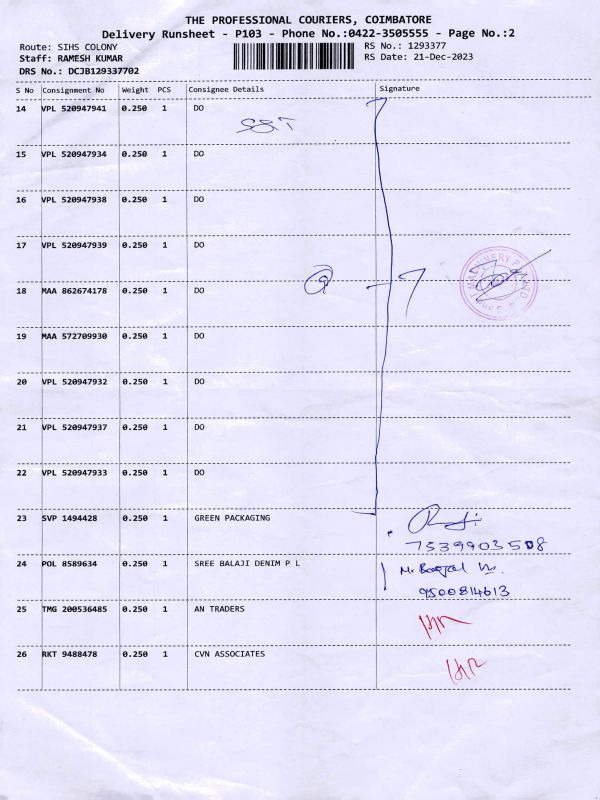 THE PROFESSIONAL COURIERS, COIMBATORE
Delivery Runsheet - P103 - Phone No.:0422-3505555 - Page No.:2
Route: SIHS COLONY
Staff: RAMESH KUMAR
DRS No.: DCJB129337702
RS No.: 1293377
RS Date: 21-Dec-2023
S No Consignment No Weight PCS Consignee Details Signature
14 VPL 520947941 0.250 1 DO
15 VPL 520947934 0.250 1 DO
16 VPL 520947938 0.250 1 DO
17 VPL 520947939 0.250 1 DO
18 MAA 862674178 0.250 1 DO
19 MAA 572709930 0.250 1 DO
20 VPL 520947932 0.250 1 DO
21 VPL 520947937 0.250 1 DO
22 VPL 520947933 0.250 1 DO
23 SVP 1494428 0.250 1 GREEN PACKAGING
7539903508
24 POL 8589634 0.250 1 SREE BALAJI DENIM P L
9500814613
25 TMG 200536485 0.250 1 AN TRADERS
26 RKT 9488478 0.250 1 CVN ASSOCIATES